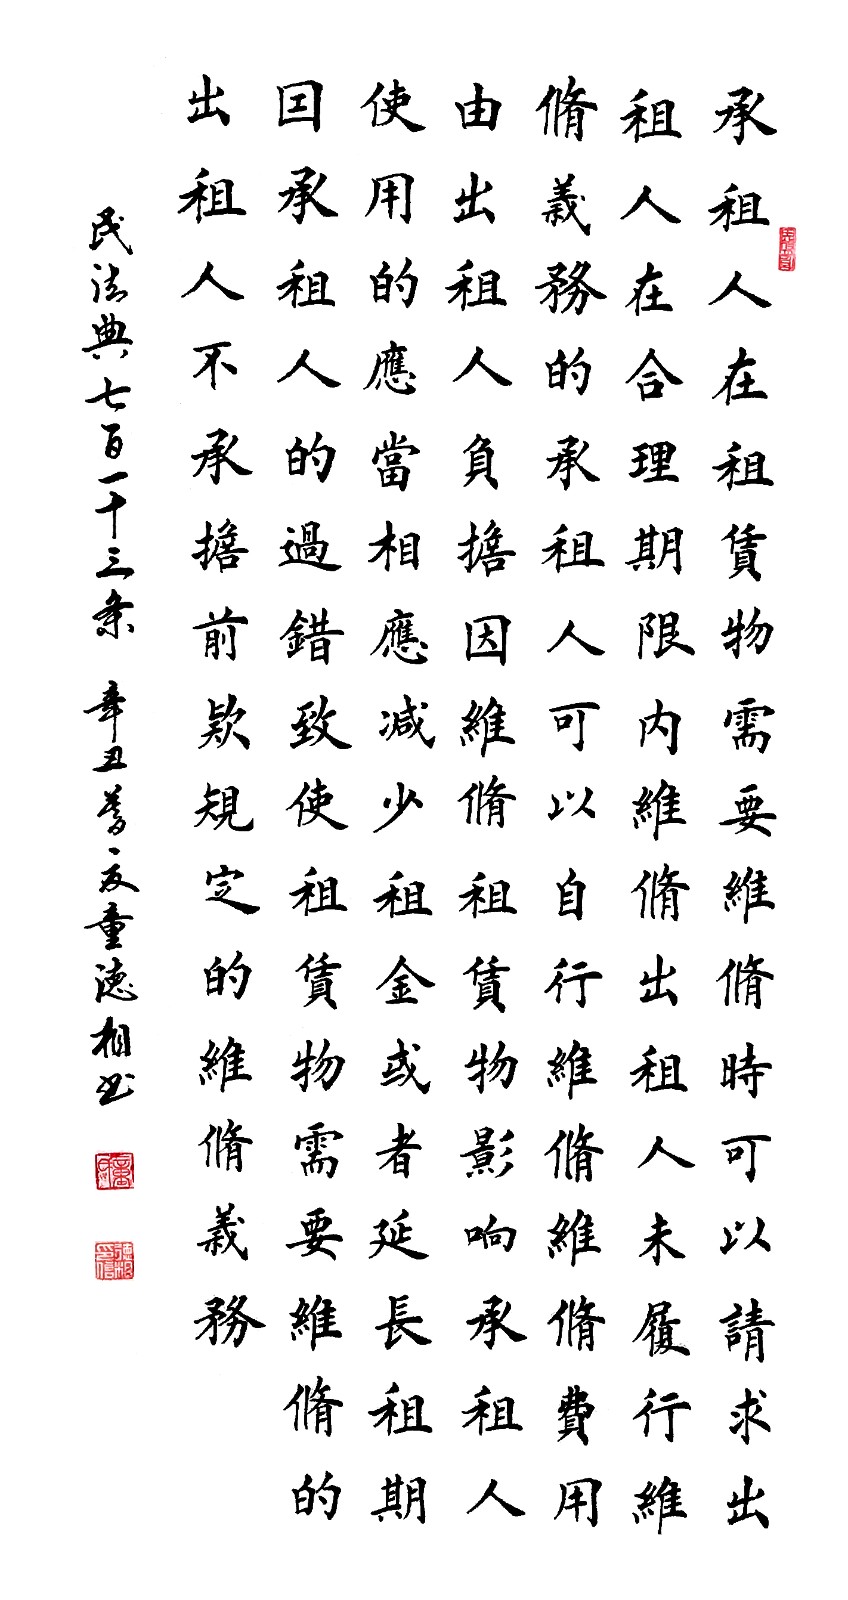 承租人在租賃物需要維脩時可以請求出
租人在合理期限内維脩出租人未履行維
脩義務的承租人可以自行維脩維脩費用
由出租人負擔因維脩租賃物影响承租人
使用的應當相應减少租金或者延長租期
因承租人的過錯致使租賃物需要維脩的
出租人不承擔前欵規定的維脩義務
民法典七百一十三条 辛丑暮夏童德相书